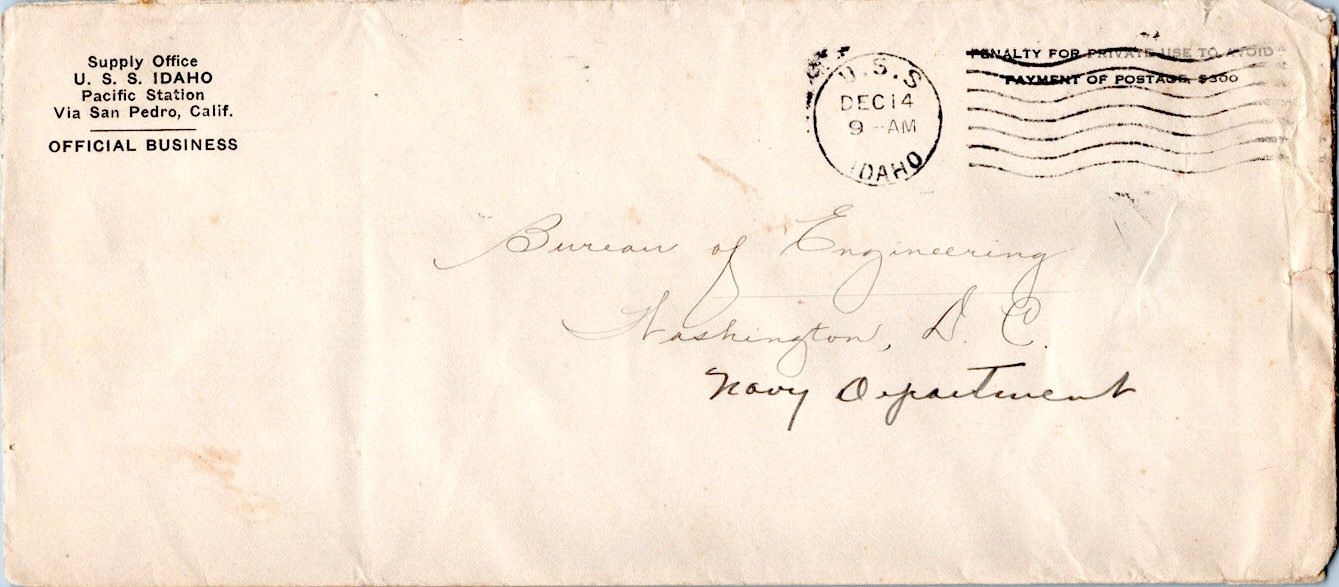 Supply Office
U. S. S. IDAHO
Pacific Station
Via San Pedro, Calif.
OFFICIAL BUSINESS
U.S.S.
DEC 14
9 - AM
IDAHO
PENALTY FOR PRIVATE USE TO AVOID
PAYMENT OF POSTAGE, $300
Bureau of Engineering
Washington, D. C.
Navy Department